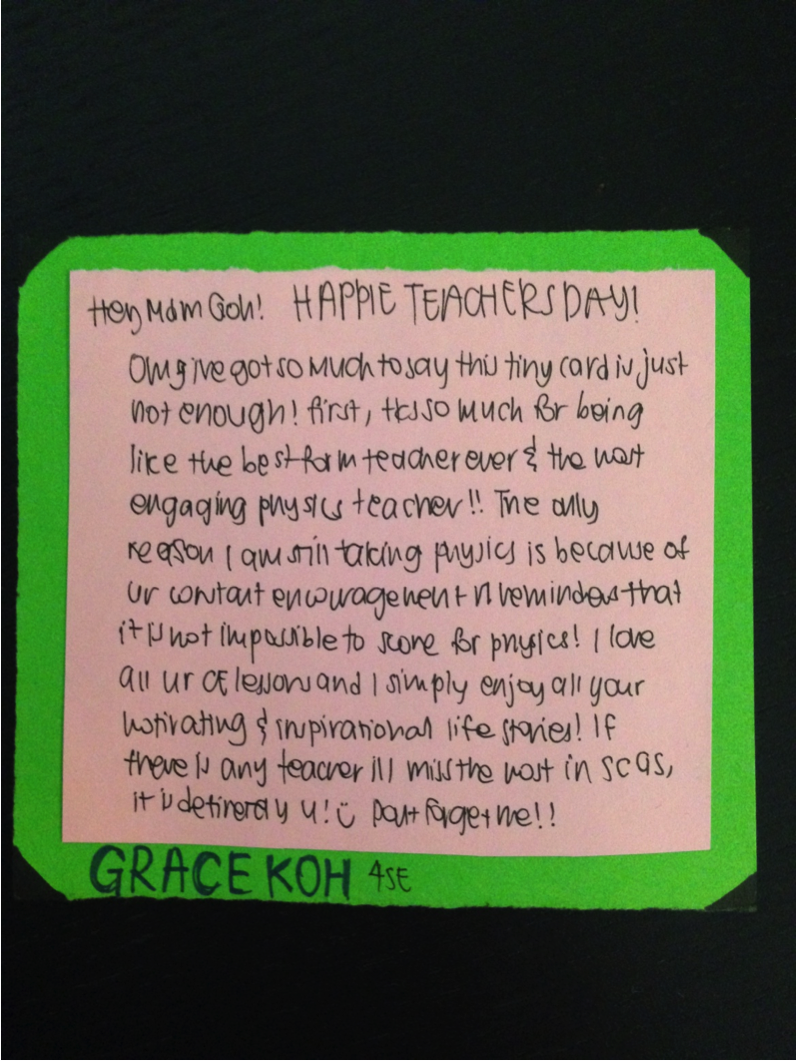 Hey Mdm Goh! HAPPIE TEACHERS DAY!
Omg ive got so much to say this tiny card is just
not enough! first, tks so much for being
like the best form teacher ever & the most
engaging physics teacher!! The only
reason I am still taking physics is because of
ur constant encouragement n reminders that
it is not impossible to score for physics! I love
all ur CE lessons and I simply enjoy all your
motivating & inspirational life stories! If
there is any teacher ill miss the most in SCGS,
it is definetely u! ü Dont forget me!!
GRACE KOH 4SE